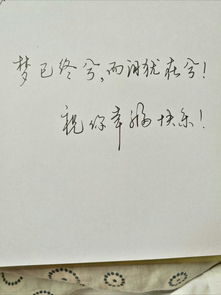 梦已终兮,而泪犹在兮!
祝你幸福快乐!